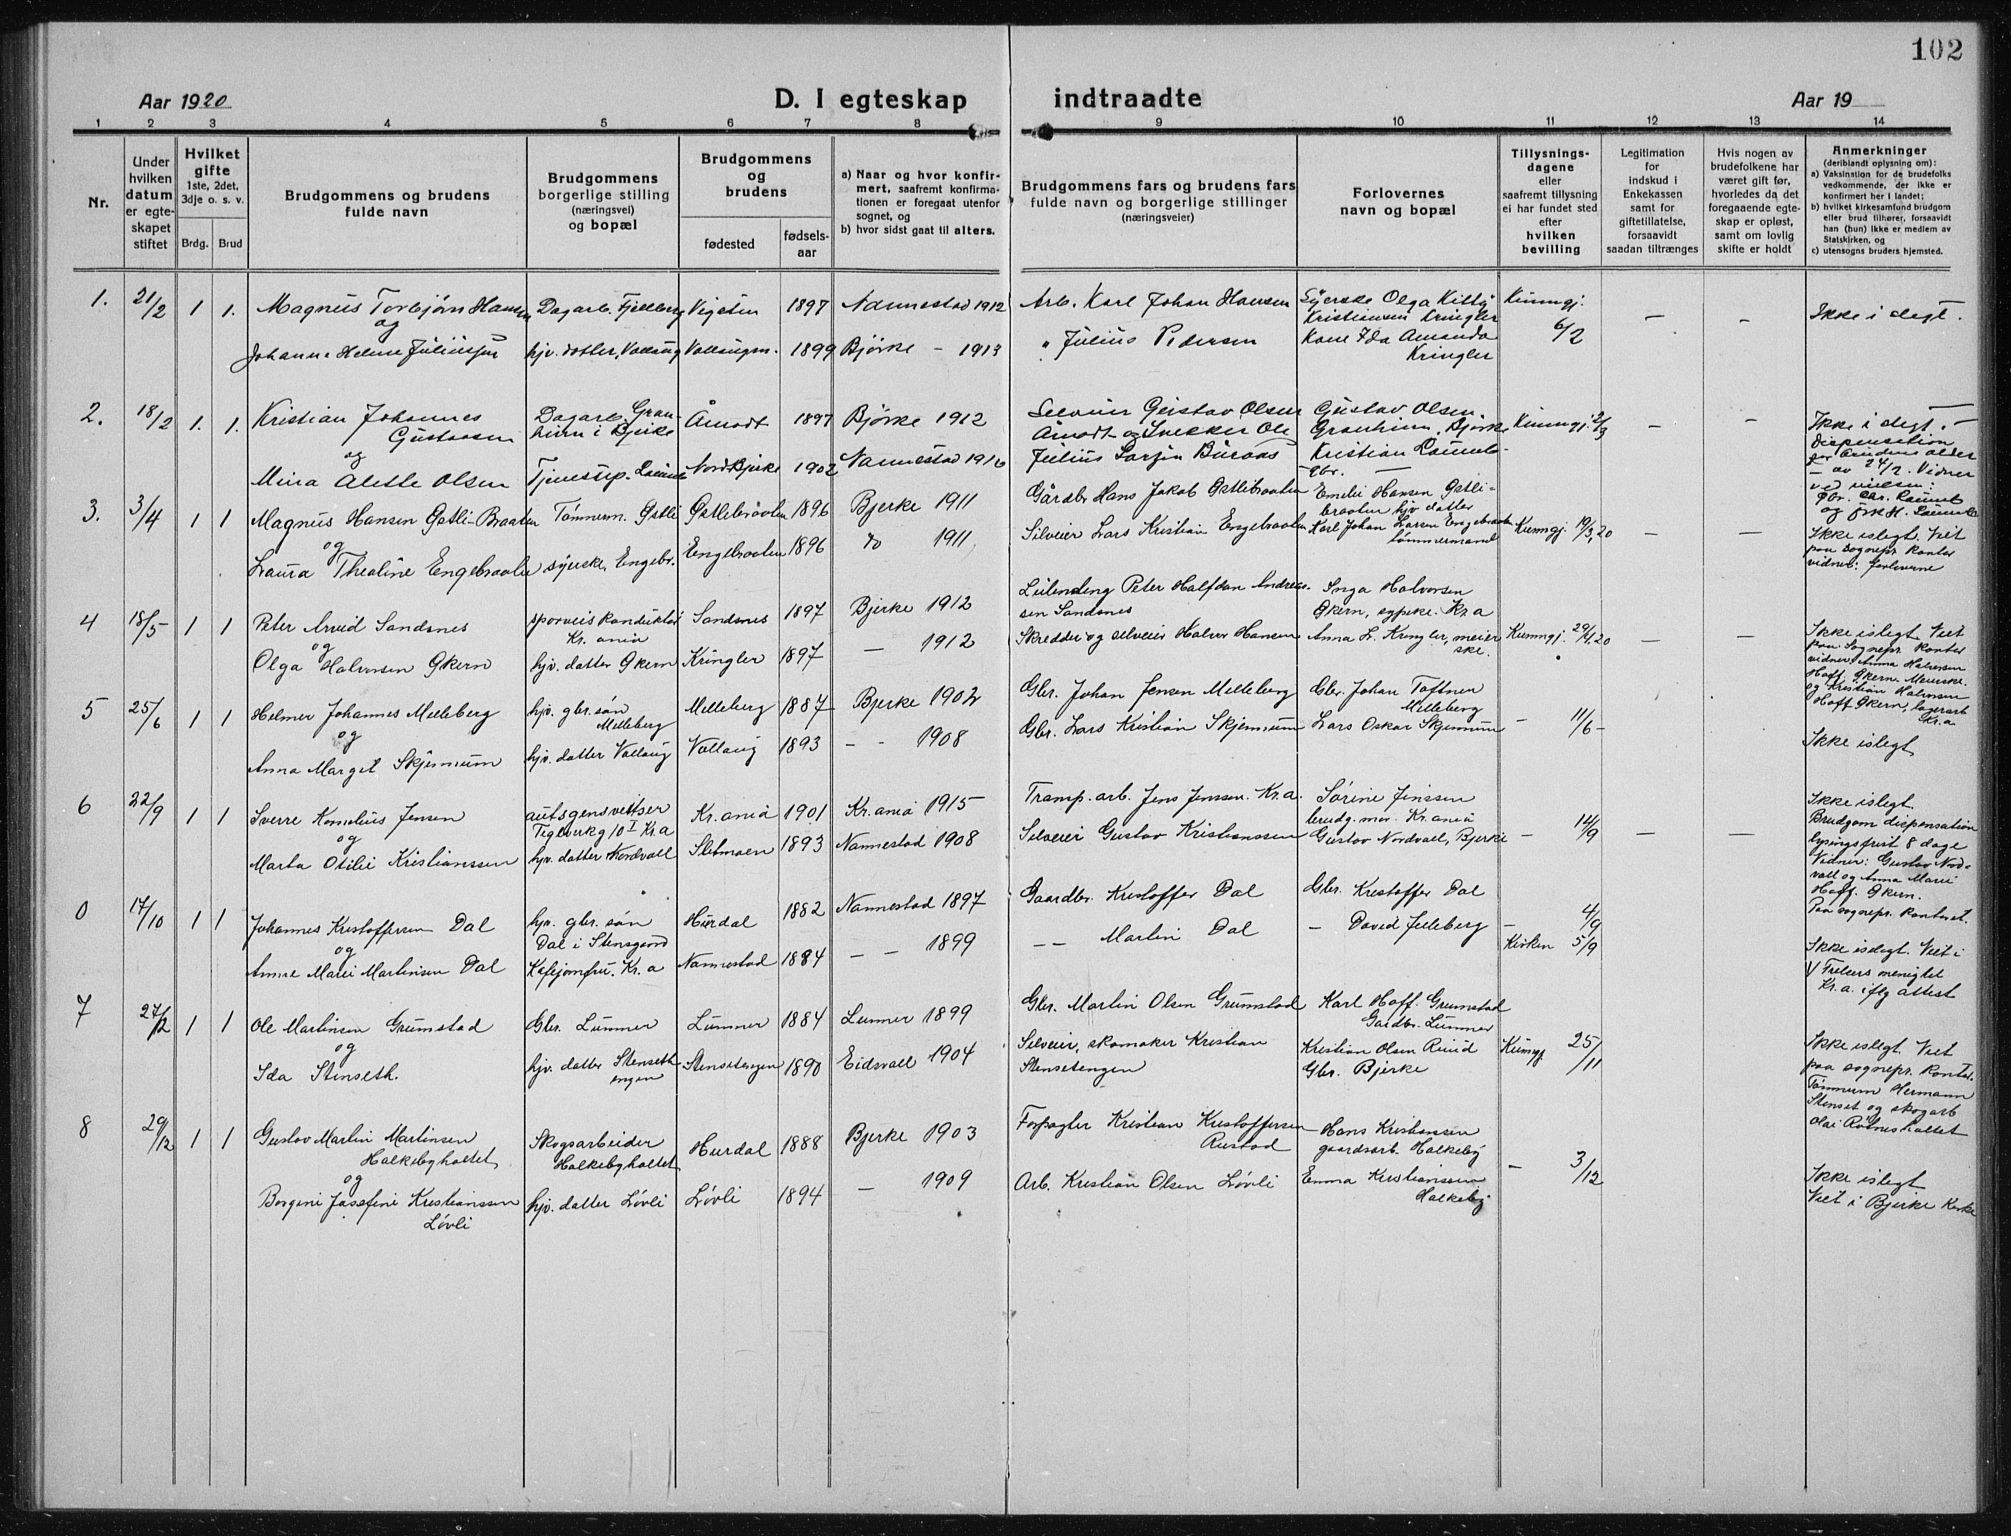 102
Aar 1920
D. I egteskap
indtraadte
Aar 19
1 2 3 4 5 6 7 8 9 10 11 12 13 14
Nr.
Under
hvilken
datum
er egte-
skapet
stiftet
Hvilket
gifte
1ste, 2det,
3dje o. s. v.
Brdg. Brud
Brudgommens og brudens
fulde navn
Brudgommens
borgerlige stilling
(næringsvei)
og bopæl
Brudgommens
og
brudens
fødested
fødsels-
aar
a) Naar og hvor konfir-
mert, saafremt konfirma-
tionen er foregaat utenfor
sognet, og
b) hvor sidst gaat til alters.
Brudgommens fars og brudens fars
fulde navn og borgerlige stillinger
(næringsveier)
Forlovernes
navn og bopæl
Tillysnings-
dagene
eller
saafremt tillysning
ei har fundet sted
efter
hvilken
bevilling
Legitimation
for
indskud i
Enkekassen
samt for
giftetillatelse,
forsaavidt
saadan tiltrænges
Hvis nogen av
brudefolkene har
været gift før,
hvorledes da det
foregaaende egte-
skap er opløst,
samt om lovlig
skifte er holdt
Anmerkninger
(deriblandt oplysning om):
a) Vaksination for de brudefolks
vedkommende, der ikke er
konfirmert her i landet;
b) hvilket kirkesamfund brudgom
eller brud tilhører, forsaavidt
han (hun) ikke er medlem av
Statskirken, og
c) utensogns bruders hjemsted.
1. 21/2 1 1. Magnus Torbjørn Hansen Dagarb. Fjelberg 1897 Nannestad 1912 Arb. Karl Johan Hansen Syerske Olga Kitty Kunngj. 6/2 — — Ikke i slegt.
og Kristiansen Kringler
Johanne Helene Juliusson hjv. datter, Vollaug Vollaugm. 1899 Bjørke – 1913 " Julius Pedersen Kone Ida Amanda
Kringler
2. 18/2 1. 1. Kristian Johannes Gustavsen Dagarb. Gran- Åmodt 1897 Bjørke 1912 Gustav Olsen Gustav Olsen. Kunngj. — — Ikke i slegt. –
og Åmodt og Snekker Ole Bjørke dispensation
Mina Alette Olsen Nord Bjerke 1902 Nannestad 1916 Julius Kristian — av 24/2. Vidner
ved vielsen:
3. 3/4 1 1 Magnus Hansen Østli-Braaten Tømmerm. Østli Østlibraaten 1896 Bjerke 1911 Gårdbr Hans Jakob Østlibraaten Emelie Hansen Østli-
braaten hjv datter
og Engebraaten 1896 do 1911 Silveier Lars Kristian Engebraaten Karl Johan Larsen Engebraaten Kunngj. 19/3,20 — — Ikke islegt. Viet
tømmermand paa sognepr. kontor
Laura Thealine Engebraaten syerske, Engebr. vidner: forloverne
4 18/5 1 1 Peter Arvid Sandsnes sporveiskonduktør Sandsnes 1897 Bjerke 1912 Peter Halfdan Andreas- Inga Halvorsen
Kr. ania sen Sandsnes Økern, sypike. Kr.a
og
Olga Halvorsen Økern hjv. datter Økern Kringler 1897 — 1912 Skredder og selveier Halvor Hansen Anna L. Kringler, meier Kunngj. 29/4,20 — — Ikke islegt. Viet
ske. paa Sognepr. kontor
vidner: Anna Halvorsen
Hoff Økern. Meierske.
og Kristian Halvorsen
Hoff Økern, lagerarb
Kr.a
5 25/6 1 1 Helmer Johannes Melleberg hjv. gbr. søn Melleberg 1887 Bjerke 1902 Gbr. Johan Jensen Melleberg Gbr. Johan Toftner
og Melleberg Melleberg
Anna Marget Skjennum hjv. datter Vollaug Vollaug 1893 – – 1908 Gbr. Lars Kristian Skjennum Lars Oskar Skjennum – 11/6 – Ikke islegt
6 22/9 1 1 Sverre Kornelius Jensen Kr.ania 1901 Kr.ania 1915 Jens Jenssen. Kr.a. Sørine Jenssen Ikke islegt.
og Teglverkg 10 I Kr.a brudg. mor. Kr. ania Brudgom dispensation
Marta Otilie Kristianssen hjv. datter Nordvall Sletmoen 1893 Nannestad 1908 Selveier Gustav Kristianssen Gustav Nordvall, Bjerke – 14/9 — — lysingsfrist 8 dage
Vidner: Gustav Nord-
vall og Anna Marie
Hoff. Økern.
Paa sognepr. kontoret.
0 17/10 1 1 Johannes Kristoffersen Dal hjv. gbr. søn Hurdal 1882 Nannestad 1897 Gaardbr. Kristoffer Dal Gbr. Kristoffer Dal
og Dal i Stensgaard – 4/9
Anne Marie Martinsen Dal Kafejomfru. Kr.a Nannestad 1884 – – 1899 – – Martin Dal – David Jelleberg Kirken 5/9 Ikke islegt. Viet i
Frelsers menighet
Kr.a. iflg attest
7 27/12 1 1 Ole Martinsen Grumstad Gbr. Lunner Lunner 1884 Lunner 1899 Gbr. Martin Olsen Grumstad Karl Hoff. Grumstad
og Gardbr. Lunner
Ida Stenseth. hjv. datter Stenseth Stensetengen 1890 Eidsvoll 1904 Selveier, skomaker Kristian Kristian Olsen Ruud Kunngj. 25/11 Ikke islegt. Viet
engen Stensetengen Gbr. Bjerke paa sognepr. kontor.
Tømmerm Hermann
Stenset og skogarb
Olai Rotneshaltet
8 29/12 1 1 Gustav Martin Martinsen Skogsarbeider Hurdal 1888 Bjerke 1903 Forpagter Kristian Kristoffersen Hans Kristiansen
Holkebyhaltet Holkebyhaltet Rustad gaardsarb. Holkeby
og – 3/12
Borgine Josefine Kristianssen hjv. datter Løvli Løvli 1894 — 1909 Arb. Kristian Olsen Løvli Emma Kristianssen Ikke islegt
Løvli Holkeby Viet i Bjerke Kirke